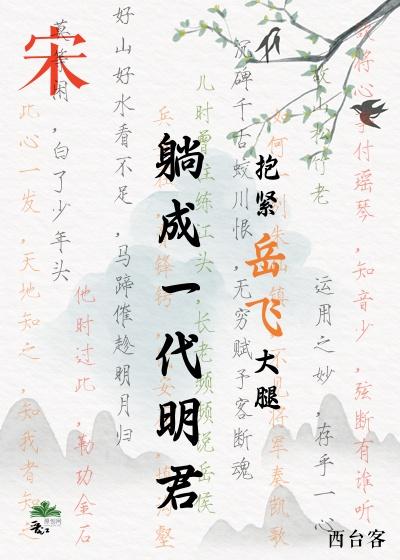 宋
抱紧岳飞大腿
躺成一代明君
西台客
莫等闲，白了少年头
好山好水看不足，马蹄催趁明月归
此心一发，天地知之，知我者知之
他时过此，勒功金石
儿时曾住练江头，长老频频说岳侯
沉碑千古蛟川恨，无穷赋子客断魂
运用之妙，存乎一心
欲将心事付瑶琴，知音少，弦断有谁听
晋江
原创网